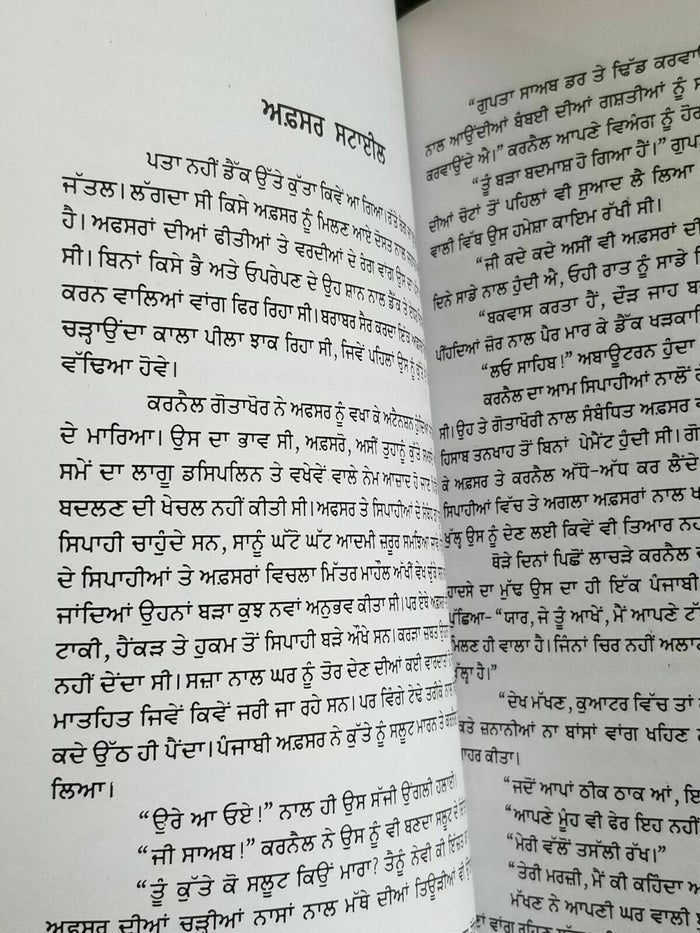 ਅਫ਼ਸਰ ਸਟਾਈਲ
ਪਤਾ ਨਹੀਂ ਡੈੱਕ ਉੱਤੇ ਕੁੱਤਾ ਕਿਵੇਂ ਆ ਗਿਆ।
ਜੱਤਲ। ਲੱਗਦਾ ਸੀ ਕਿਸੇ ਅਫ਼ਸਰ ਨੂੰ ਮਿਲਣ ਆਏ ਦੋਸਤ ਨਾਲ
ਹੈ। ਅਫਸਰਾਂ ਦੀਆਂ ਫੀਤੀਆਂ ਤੇ ਵਰਦੀਆਂ ਦੇ ਰੰਗ ਵਾਂਗ ਉਸ ਦਾ
ਸੀ। ਬਿਨਾਂ ਕਿਸੇ ਭੈ ਅਤੇ ਓਪਰੇਪਣ ਦੇ ਉਹ ਸ਼ਾਨ ਨਾਲ ਡੈੱਕ ਤੇ
ਕਰਨ ਵਾਲਿਆਂ ਵਾਂਗ ਫਿਰ ਰਿਹਾ ਸੀ। ਬਰਾਬਰ ਸੈਰ ਕਰਦਾ ਇੱਕ
ਚੜ੍ਹਾਉਂਦਾ ਕਾਲਾ ਪੀਲਾ ਝਾਕ ਰਿਹਾ ਸੀ, ਜਿਵੇਂ ਪਹਿਲਾਂ ਉਸ ਨੂੰ ਕੁੱਤੇ ਨੇ
ਵੱਢਿਆ ਹੋਵੇ।
ਕਰਨੈਲ ਗੋਤਾਖੋਰ ਨੇ ਅਫਸਰ ਨੂੰ ਵਖਾ ਕੇ ਅਟੈਨਸ਼ਨ ਹੁੰਦਿਆਂ
ਦੇ ਮਾਰਿਆ। ਉਸ ਦਾ ਭਾਵ ਸੀ, ਅਫ਼ਸਰੋ, ਅਸੀਂ ਤੁਹਾਨੂੰ ਕੁੱਤੇ
ਸਮੇਂ ਦਾ ਲਾਗੂ ਡਸਿਪਲਿਨ ਤੇ ਵਖੇਵੇਂ ਵਾਲੇ ਨੇਮ ਆਜ਼ਾਦ ਹੋ ਜਾਣ
ਬਦਲਣ ਦੀ ਖੇਚਲ ਨਹੀਂ ਕੀਤੀ ਸੀ। ਅਫਸਰ ਤੇ ਸਿਪਾਹੀਆਂ ਦੇ
ਸਿਪਾਹੀ ਚਾਹੁੰਦੇ ਸਨ, ਸਾਨੂੰ ਘੱਟੋ ਘੱਟ ਆਦਮੀ ਜ਼ਰੂਰ ਸਮਝਿਆ ਜਾਵੇ
ਦੇ ਸਿਪਾਹੀਆਂ ਤੇ ਅਫ਼ਸਰਾਂ ਵਿਚਲਾ ਮਿੱਤਰ ਮਾਹੌਲ ਅੱਖੀਂ ਵੇਖ ਚੁੱਕੇ
ਜਾਂਦਿਆਂ ਉਹਨਾਂ ਬੜਾ ਕੁਝ ਨਵਾਂ ਅਨੁਭਵ ਕੀਤਾ ਸੀ। ਪਰ ਏਥੇ
ਟਾਕੀ, ਹੈਂਕੜ ਤੇ ਹੁਕਮ ਤੋਂ ਸਿਪਾਹੀ ਬੜੇ ਔਖੇ ਸਨ। ਕਰੜਾ ਜ਼ਬਤ
ਨਹੀਂ ਦੇਂਦਾ ਸੀ। ਸਜ਼ਾ ਨਾਲ ਘਰ ਨੂੰ ਤੋਰ ਦੇਣ ਦੀਆਂ ਕਈ ਵਾਰਦਾਤਾਂ
ਮਾਤਹਿਤ ਜਿਵੇਂ ਕਿਵੇਂ ਜਰੀ ਜਾ ਰਹੇ ਸਨ। ਪਰ ਵਿੰਗੇ ਟੇਢੇ ਤਰੀਕੇ ਨਾਲ
ਕਦੇ ਉੱਠ ਹੀ ਪੈਂਦਾ। ਪੰਜਾਬੀ ਅਫ਼ਸਰ ਨੇ ਕੁੱਤੇ ਨੂੰ ਸਲੂਟ ਮਾਰਨ ਤੇ
ਲਿਆ।
“ਉਰੇ ਆ ਓਏ!” ਨਾਲ ਹੀ ਉਸ ਸੱਜੀ ਉਂਗਲੀ ਹਲਾਈ।
“ਜੀ ਸਾਅਬ!” ਕਰਨੈਲ ਨੇ ਉਸ ਨੂੰ ਵੀ ਬਣਦਾ ਸਲੂਟ ਦੇ
“ਤੂੰ ਕੁੱਤੇ ਕੋ ਸਲੂਟ ਕਿਉਂ ਮਾਰਾ? ਤੈਨੂੰ ਨੇਵੀ ਕੀ
ਅਫ਼ਸਰ ਦੀਆਂ ਚੜੀਆਂ ਨਾਸਾਂ ਨਾਲ ਮੱਥੇ ਦੀਆਂ ਤਿਊੜੀਆਂ ਵੀ
“ਗੁਪਤਾ ਸਾਅਬ ਡਰ ਤੇ ਢਿੱਡ
ਨਾਲ ਆਉਂਦੀਆਂ ਬੰਬਈ ਦੀਆਂ ਗਸ਼ਤੀਆਂ ਨੂੰ
ਕਰਵਾਉਂਦੇ ਐ।” ਕਰਨੈਲ ਆਪਣੇ ਵਿਅੰਗ ਨੂੰ ਹੋਰ
“ਤੂੰ ਬੜਾ ਬਦਮਾਸ਼ ਹੋ ਗਿਆ ਹੈਂ।”
ਦੀਆਂ ਚੋਟਾਂ ਤੋਂ ਪਹਿਲਾਂ ਵੀ ਸੁਆਦ ਲੈ ਲਿਆ
ਵਾਲੀ ਵਿੱਥ ਉਸ ਹਮੇਸ਼ਾ ਕਾਇਮ ਰੱਖੀ ਸੀ।
“ਜੀ ਕਦੇ ਕਦੇ ਅਸੀਂ ਵੀ ਅਫ਼ਸਰਾਂ ਦੀ
ਦਿਨੇ ਸਾਡੇ ਨਾਲ ਹੁੰਦੀ ਐ, ਓਹੀ ਰਾਤ ਨੂੰ ਸਾਡੇ
“ਬਕਵਾਸ ਕਰਤਾ ਹੈਂ, ਦੌੜ ਜਾਹ
ਪੀਂਹਦਿਆਂ ਜ਼ੋਰ ਨਾਲ ਪੈਰ ਮਾਰ ਕੇ ਡੈੱਕ
“ਲਓ ਸਾਹਿਬ!” ਅਬਾਊਟਰਨ ਹੁੰਦਾ
ਕਰਨੈਲ ਦਾ ਆਮ ਸਿਪਾਹੀਆਂ ਨਾਲੋਂ
ਸੀ। ਉਹ ਤੇ ਗੋਤਾਖੋਰੀ ਨਾਲ ਸੰਬੰਧਿਤ ਅਫ਼ਸਰ
ਹਿਸਾਬ ਤਨਖਾਹ ਤੋਂ ਬਿਨਾਂ ਪੇਮੈਂਟ ਹੁੰਦੀ ਸੀ।
ਕੇ ਅਫ਼ਸਰ ਤੇ ਕਰਨੈਲ ਅੱਧੋ-ਅੱਧ ਕਰ ਲੈਂਦੇ
ਸਿਪਾਹੀਆਂ ਵਿੱਚ ਤੇ ਅਗਲਾ ਅਫ਼ਸਰਾਂ ਨਾਲ
ਖੁੱਲ੍ਹ ਉਸ ਨੂੰ ਦੇਣ ਲਈ ਕਿਵੇਂ ਵੀ ਤਿਆਰ
ਥੋੜੇ ਦਿਨਾਂ ਪਿਛੋਂ ਲਾਚੜੇ ਕਰਨੈਲ
ਹਾਦਸੇ ਦਾ ਮੁੱਢ ਉਸ ਦਾ ਹੀ ਇੱਕ ਪੰਜਾਬੀ
ਪੁੱਛਿਆ- “ਯਾਰ, ਜੇ ਤੂੰ ਆਖੇਂ, ਮੈਂ ਆਪਣੇ
ਮਿਲਣ ਹੀ ਵਾਲਾ ਹੈ। ਜਿੰਨਾਂ ਚਿਰ ਨਹੀਂ
ਹੈ।”
“ਦੇਖ ਮੱਖਣ, ਕੁਆਟਰ ਵਿੱਚ ਤਾਂ
ਜ਼ਨਾਨੀਆਂ ਨਾ ਬਾਂਸਾਂ ਵਾਂਗ ਖਹਿਣ
ਕੀਤਾ।
“ਜਦੋਂ ਆਪਾਂ ਠੀਕ ਠਾਕ ਆਂ,
“ਆਪਣੇ ਮੂੰਹ ਵੀ ਫੇਰ ਇਹ ਨਹੀਂ
“ਮੇਰੀ ਵੱਲੋਂ ਤਸੱਲੀ ਰੱਖ।”
“ਤੇਰੀ ਮਰਜ਼ੀ, ਮੈਂ ਕੀ ਕਹਿੰਦਾ
ਮੱਖਣ ਨੇ ਆਪਣੀ ਘਰ ਵਾਲੀ
ਵਾਂਗ ਰਹਿਣ